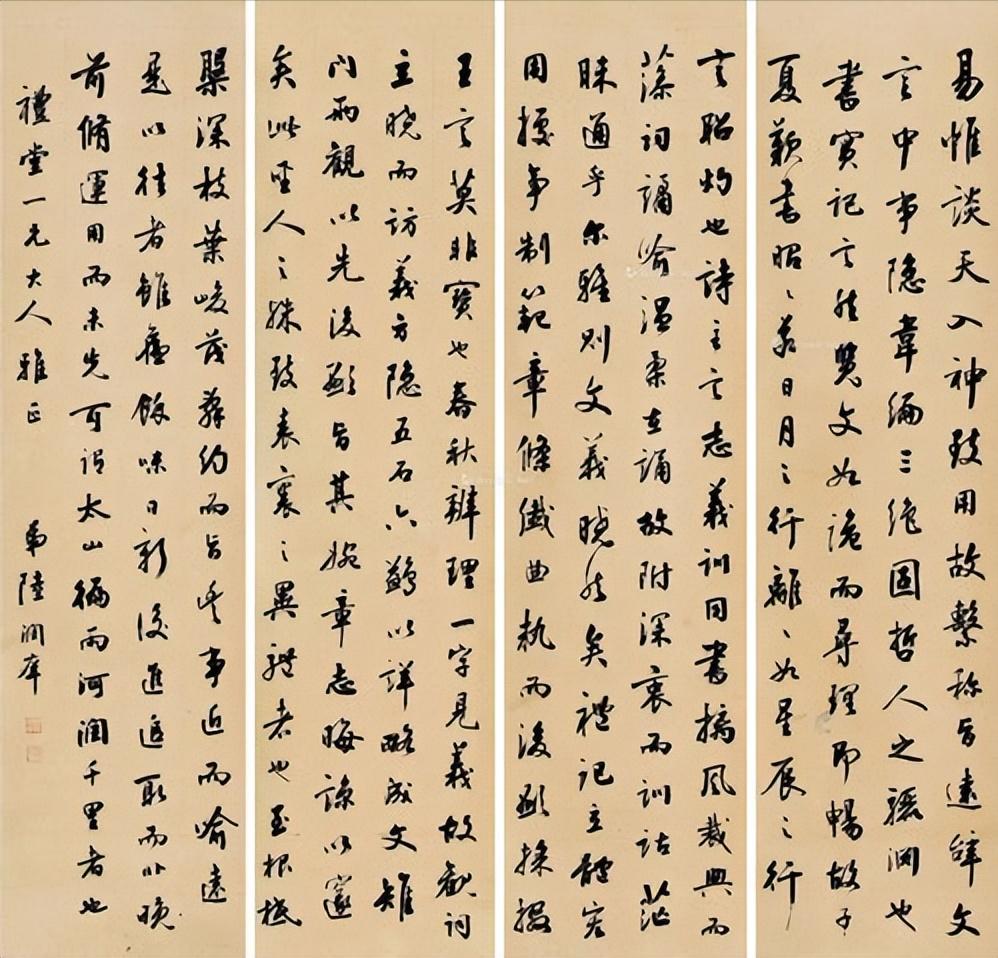 易惟談天入神致用故繫称旨遠辭文
言中事隐韋编三绝固哲人之驪淵也
書實记言然覽文如詭而尋理即暢故子
夏歎書昭〻若日月之行離〻如星辰之行
言昭灼也詩主言志義训同書摛风裁興而
藻词譎喻温柔在誦故附深衷而训诂茫
昧通乎尔雅则文義晓然矣禮记立體宏
用據事制範章條纖曲執而後顯採掇
王言莫非寶也春秋辨理一字見義故觀词
立晓而访義方隐五石六鷁以詳略成文雉
门两觀以先後顯旨其婉章志晦諒以邃
矣此聖人之殊致表裏之異體者也至根柢
槃深枝葉峻茂辭约而旨豐事近而喻遠
是以往者雖舊餘味日新後進追取而非晚
前脩運用而未先可谓太山徧雨河潤千里者也
禮堂一兄大人雅正
弟陸润庠